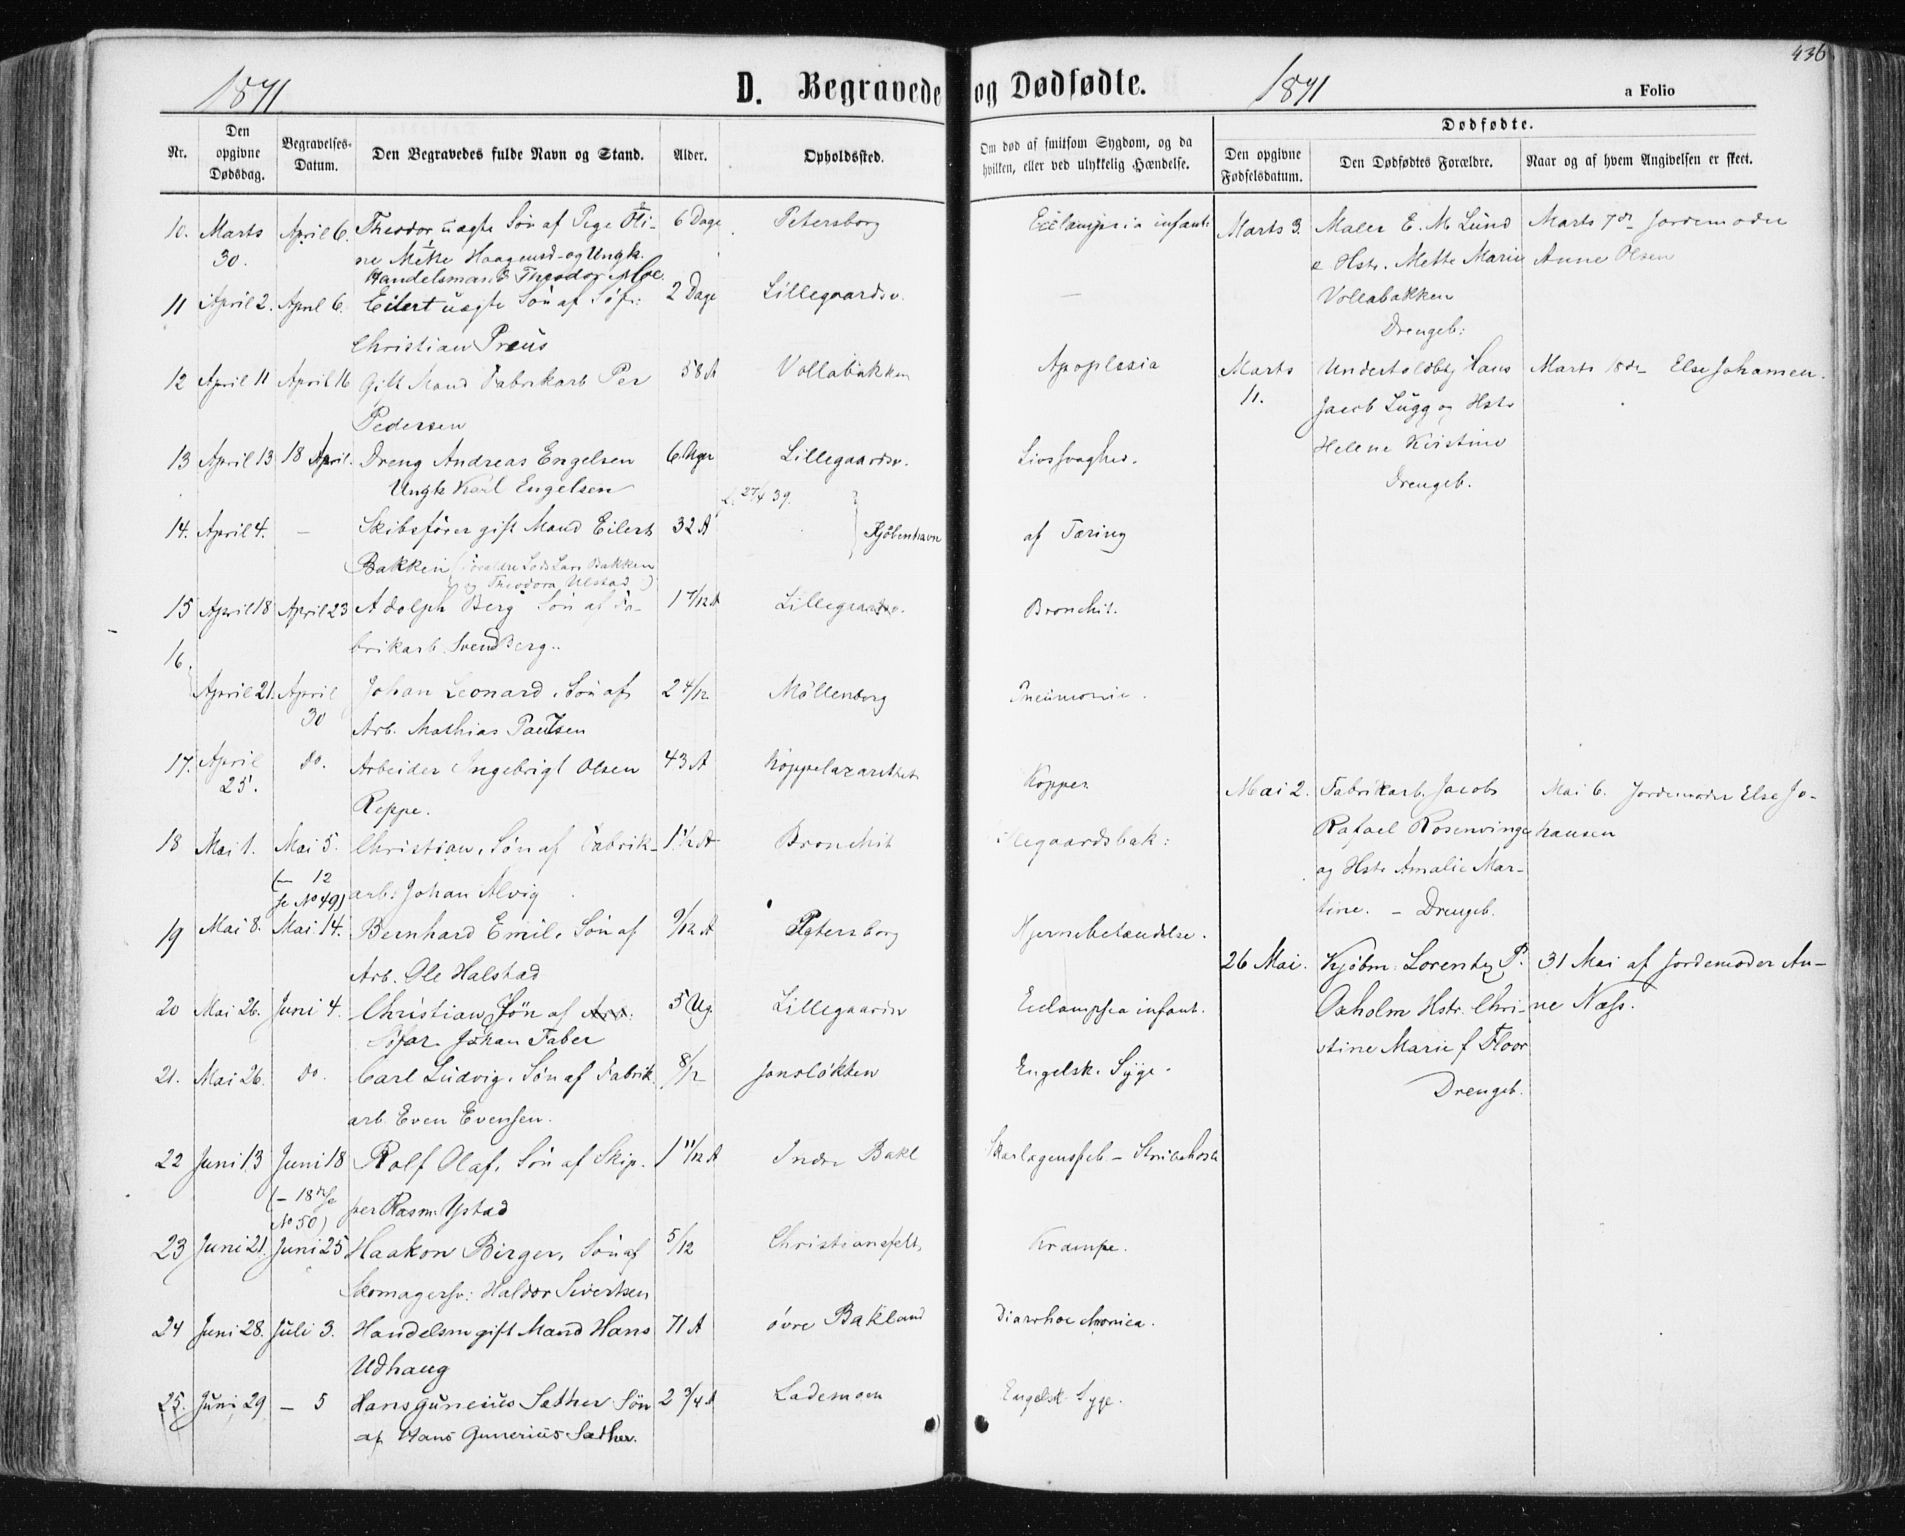 436
1871
D. Begravede og Dødfødte.
1871
a Folio
Nr.
Den opgivne Dødsdag.
Begravelses-Datum.
Den Begravedes fulde Navn og Stand.
Alder.
Opholdssted.
Om død af smitsom Sygdom, og da hvilken, eller ved ulykkelig Hændelse.
Dødfødte.
Den opgivne Fødselsdatum.
Den Dødfødtes Forældre.
Naar og af hvem Angivelsen er skeet.
10. Marts 30. April 6. Theodor uægte Søn af Pige Oli- 6 Dage Petersborg Eclampsia infant.
ne Mette Haagensd. og Ungk.
Handelsmand Theodor Moe
11 April 2. April 6. Eilert uægte Søn af Sjøf: 2 Dage Lillegaardsv. —
Christian Preus
12 April 11 April 16 Gift Mand Fabrikarb Per 58 A Vollabakken Apoplexia
Pedersen
13 April 13 18 April. Dreng Andreas Engelsen 6 Uger Lillegaardsv. Livssvaghed.
Ungk Karl Engelsen
27/4 39.
14. April 4. — Skibsfører gift Mand Eilert 32 A Kjöbenhavn af Tæring
Bakken (Forældre Lods Lars Bakken
og Theodora Ulstad)
15 April 18 April 23 Adolph Berg Søn af Fa- 1 7/12 A Lillegaardsv. Bronchit.
brikarb. Svend Berg.
16. April 21. April 30 Johan Leonard, Søn af 2 4/12 Möllenberg Pneumonie.
Arb. Mathias Paulsen
17. April 25. do. Arbeider Ingebrigt Olsen 43 A Koppelazarethet Kopper
Reppe.
18 Mai 1. Mai 5. Christian, Søn af Fabrik- 1 1/2 A Bronchit llegaardsbak:
(— 12 se No 49) arb: Johan Alvig
19 Mai 8. Mai 14. Bernhard Emil, Søn af 9/12 A Petersborg Hjernebetændelse.
Arb. Ole Halstad
20 Mai 26. Juni 4. Christian, Søn af Arb: 5 Ug. Lillegaardsv Eclampsia infant.
Johan Faber
21. Mai 26. do. Carl Ludvig, Søn af Fabrik 8/12 Jonsløkken Engelsk. Syge.
arb. Even Evensen.
22 Juni 13 Juni 18 Rolf Olaf, Søn af Skip- 1 11/12 A Indre Bakl Skarlagensfeb — Strubehoste
(— 18 se No 50) per Rasm. Ystad
23 Juni 21. Juni 25 Haakon Birger, Søn af 5/12 Christiansfelt Krampe.
Skomagersv: Haldor Sivertsen
24 Juni 28. Juli 3. Handelsm gift Mand Hans 71 A øvre Bakland Diarrhoe chronica.
Udhaug
25. Juni 29 — 5 Hans Guneius Sæther Søn 2 3/4 A Lademoen Engelsk Syge.
af Hans Gunerius Sæther.
Marts 3. Maler E. M. Lund Marts 7de Jordemoder
e Hstr. Mette Marie Anne Olsen
Vollabakken
Drengeb:
Marts 11. Undertoldbtj Hans Marts 18de Else Johansen.
Jacob Lugg og Hstr
Helene Kristine
Drengeb.
Mai 2. Fabrikarb. Jacob Mai 6. Jordemoder Else Jo-
Rafael Rosenvinge hansen
og Hstr Amalie Mar-
tine. — Drengeb.
26 Mai. Kjöbm: Lorentz P. 31 Mai af Jordemoder An-
Oxholm Hstr. Chri- ne Næss.
stine Marie f Floor
Drengeb.